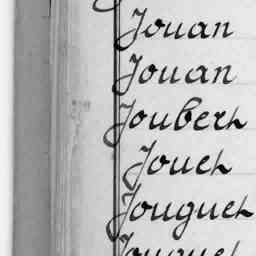 Jouan
Jouan
Joubert
Jouet
Jouguet
Jouguet